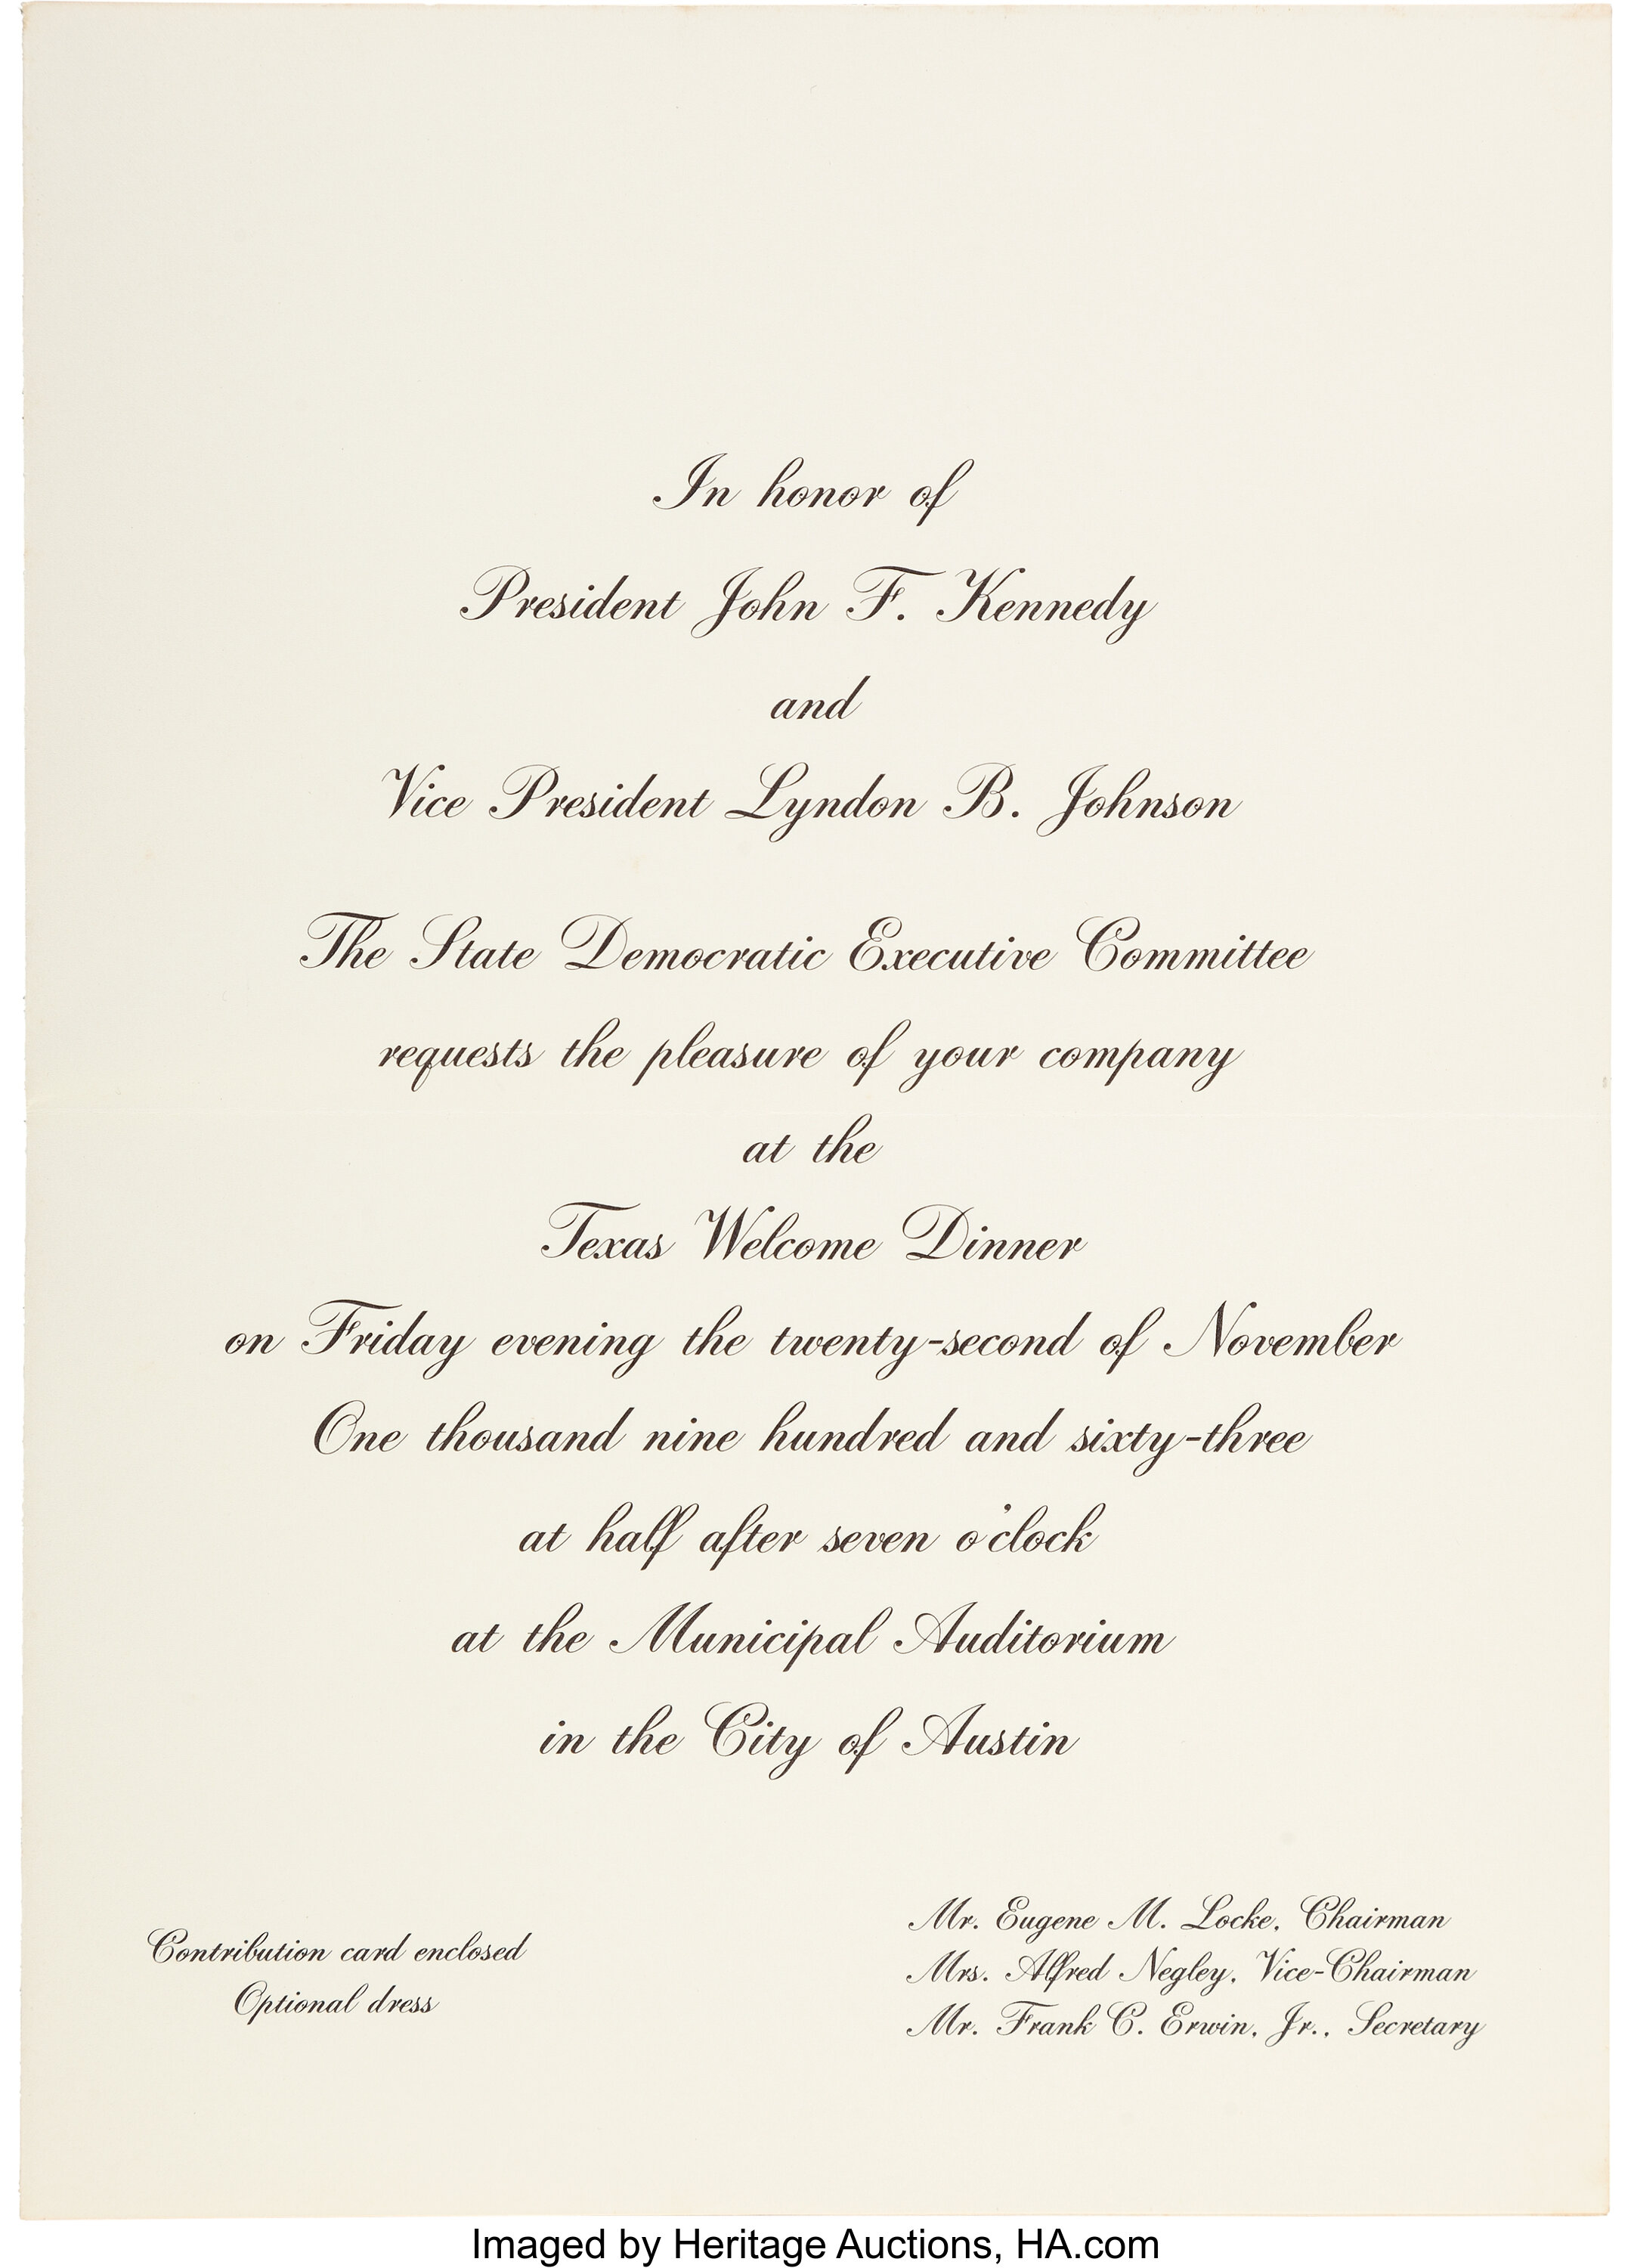 In honor of
President John F. Kennedy
and
Vice President Lyndon B. Johnson
The State Democratic Executive Committee
requests the pleasure of your company
at the
Texas Welcome Dinner
on Friday evening the twenty-second of November
One thousand nine hundred and sixty-three
at half after seven o'clock
at the Municipal Auditorium
in the City of Austin
Contribution card enclosed
Optional dress
Mr. Eugene M. Locke, Chairman
Mrs. Alfred Negley, Vice-Chairman
Mr. Frank C. Erwin, Jr., Secretary
Imaged by Heritage Auctions, HA.com